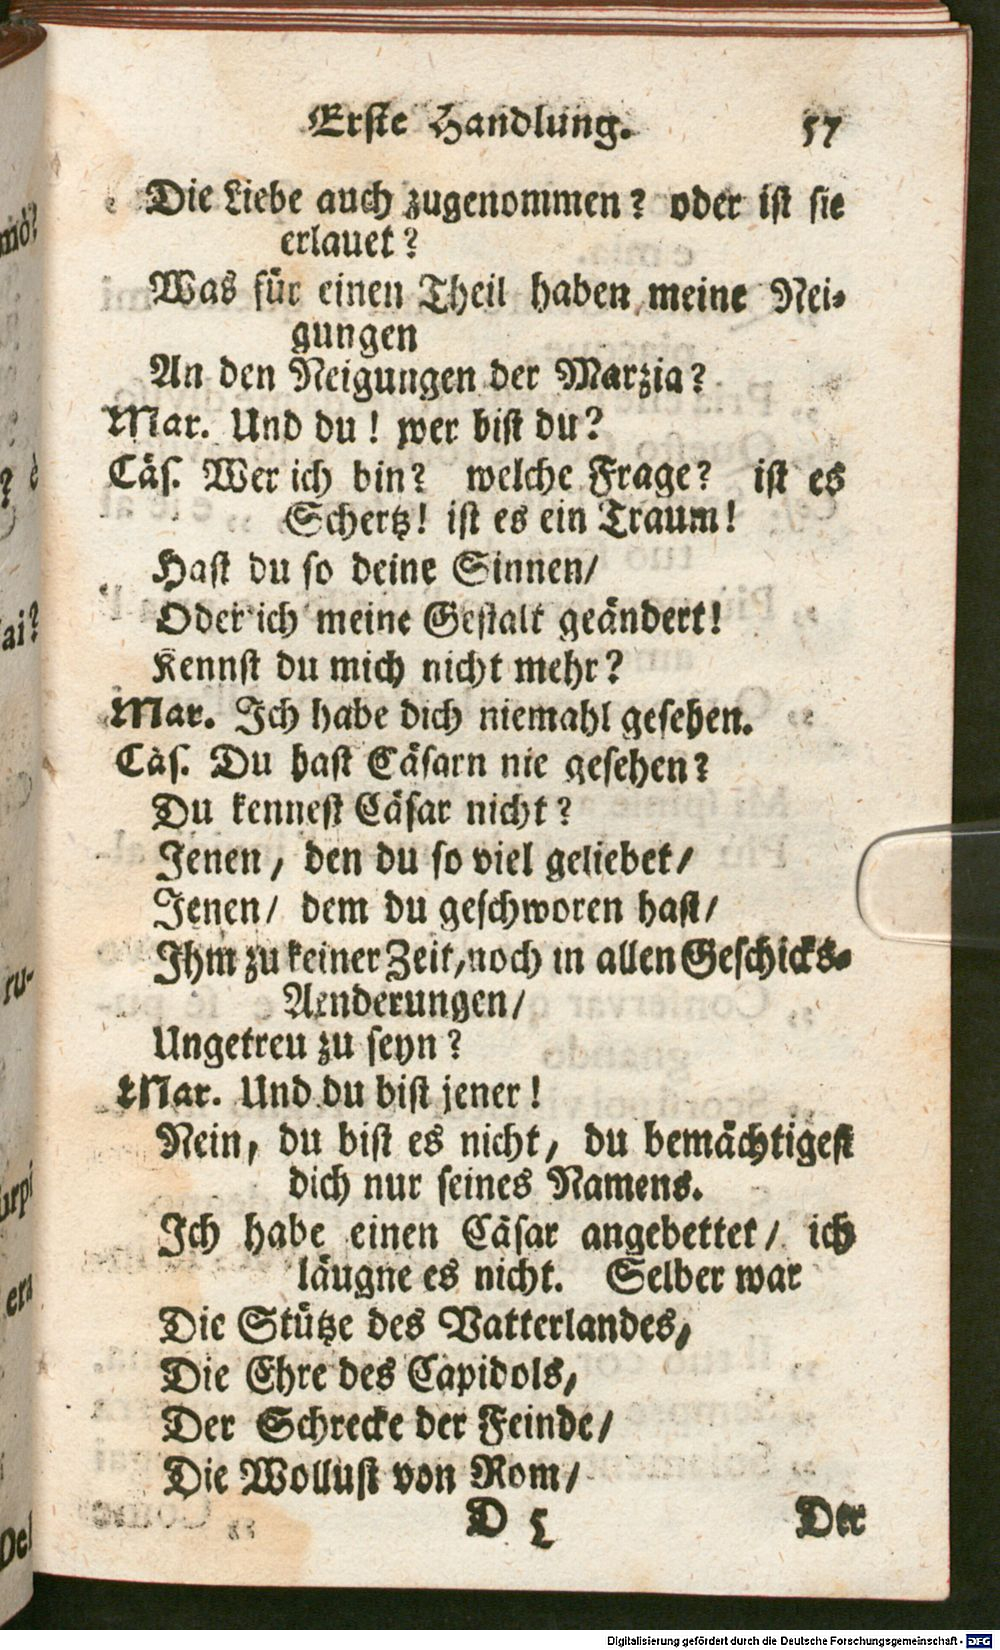 Erste Handlung. 57
Die Liebe auch zugenommen? oder ist sie
erlauet?
Was für einen Theil haben meine Nei-
gungen
An den Neigungen der Marzia?
Mar. Und du! wer bist du?
Cäs. Wer ich bin? welche Frage? ist es
Schertz! ist es ein Traum!
Hast du so deine Sinnen/
Oder ich meine Gestalt geändert!
Kennst du mich nicht mehr?
Mar. Ich habe dich niemahl gesehen.
Cäs. Du hast Cäsarn nie gesehen?
Du kennest Cäsar nicht?
Jenen, den du so viel geliebet/
Jenen/ dem du geschworen hast/
Ihm zu keiner Zeit, noch in allen Geschicks-
Aenderungen/
Ungetreu zu seyn?
Mar. Und du bist jener!
Nein, du bist es nicht, du bemächtigest
dich nur seines Namens.
Ich habe einen Cäsar angebettet/ ich
läugne es nicht. Selber war
Die Stütze des Vatterlandes,
Die Ehre des Capidols,
Der Schrecke der Feinde/
Die Wollust von Rom/
D 5 Der
mò?
? è
ai?
ru-
urpi
era
Del
Digitalisierung gefördert durch die Deutsche Forschungsgemeinschaft - DFG